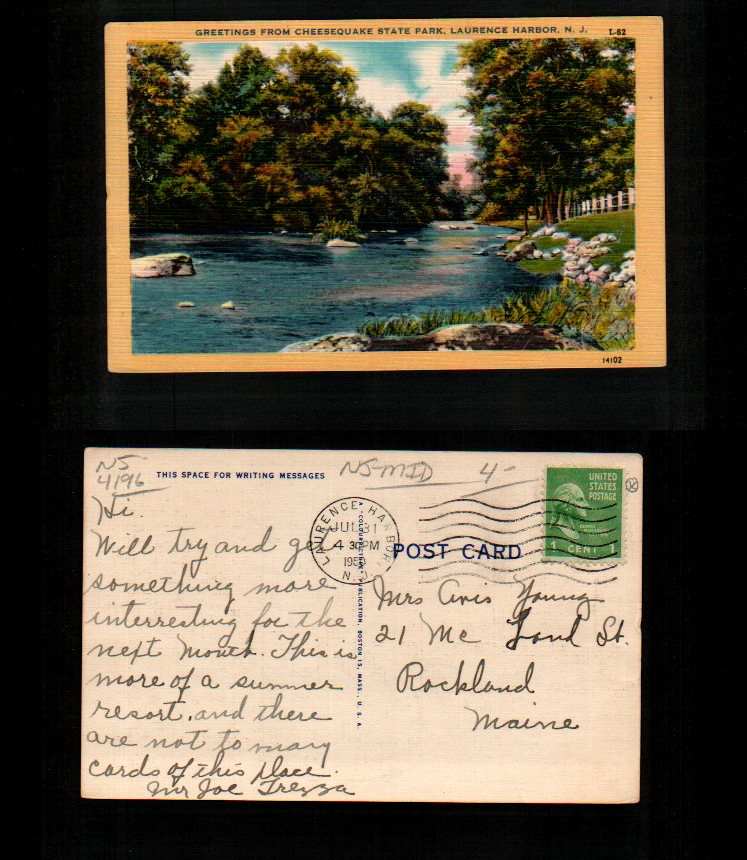 GREETINGS FROM CHEESEQUAKE STATE PARK, LAURENCE HARBOR, N. J.
L-82
14102
NJ
4196
THIS SPACE FOR WRITING MESSAGES
NJ-MID 4-
Hi.
Will try and get
something more
interresting for the
next month. This is
more of a summer
resort, and there
are not to many
cards of this place.
Mr Joe Trezza
A "COLOURPICTURE" PUBLICATION, BOSTON 15, MASS., U. S. A.
LAURENCE HARBOR
JUL 31
4 30 PM
1950
N.J.
POST CARD
UNITED
STATES
POSTAGE
1 CENT 1
Mrs Avis Young
21 Mc Loud St.
Rockland
Maine